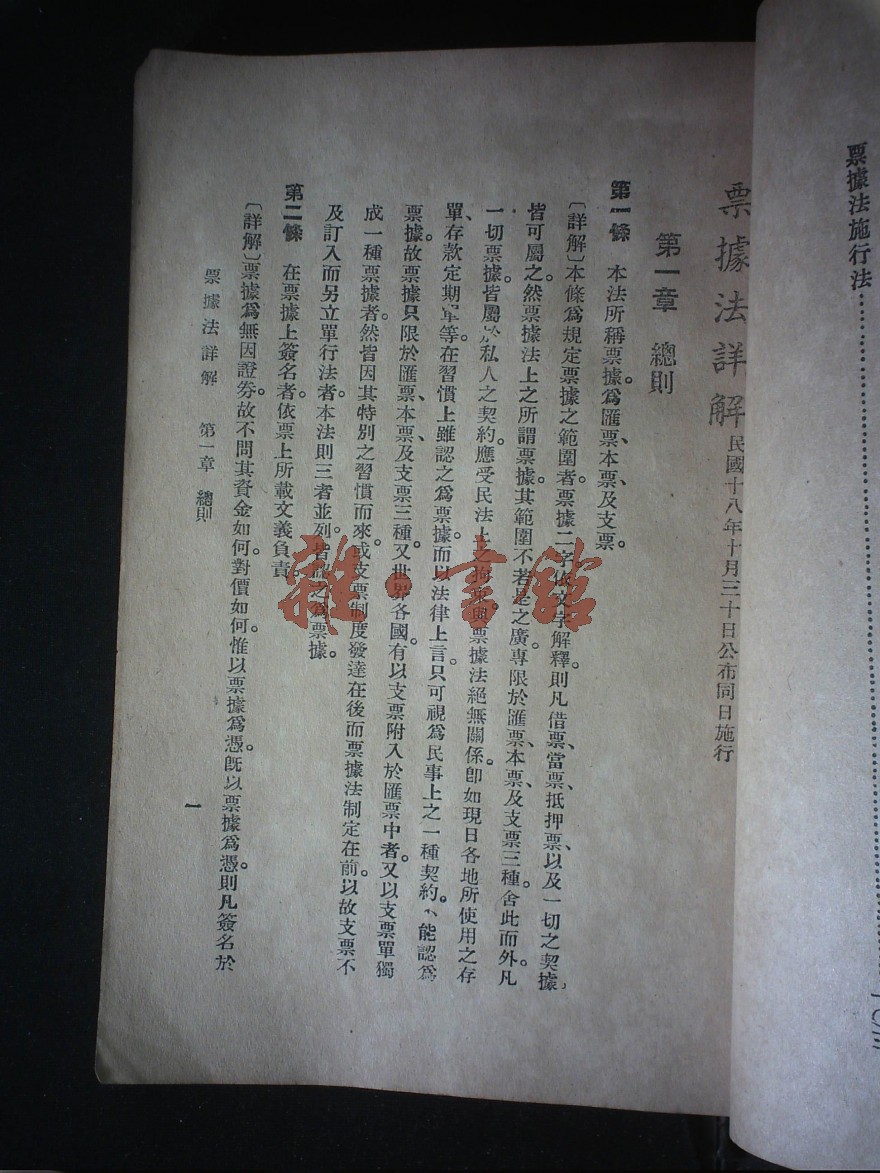 票據法施行法
票據法詳解 民國十八年十月三十日公布同日施行
第一章 總則
第一條 本法所稱票據。爲匯票、本票、及支票。
〔詳解〕本條爲規定票據之範圍者。票據二字。依文字解釋。則凡借票、當票、抵押票、以及一切之契據、
皆可屬之。然票據法上之所謂票據。其範圍不若是之廣。專限於匯票、本票、及支票三種。舍此而外。凡
一切票據。皆屬於私人之契約。應受民法上之拘束。與票據法絕無關係。卽如現日各地所使用之存
單、存款定期單等。在習慣上雖認之爲票據。而以法律上言。只可視爲民事上之一種契約。能認爲
票據。故票據只限於匯票、本票、及支票三種。又世界各國。有以支票附入於匯票中者。又以支票單獨
成一種票據者。然皆因其特別之習慣而來。或支票制度發達在後。而票據法制定在前。以故支票不
及訂入而另立單行法者。本法則三者並列。皆之爲票據。
第二條 在票據上簽名者。依票上所載文義負責。
〔詳解〕票據爲無因證券。故不問其資金如何。對價如何。惟以票據爲憑。旣以票據爲憑。則凡簽名於
票據法詳解 第一章 總則
一
雜·書館